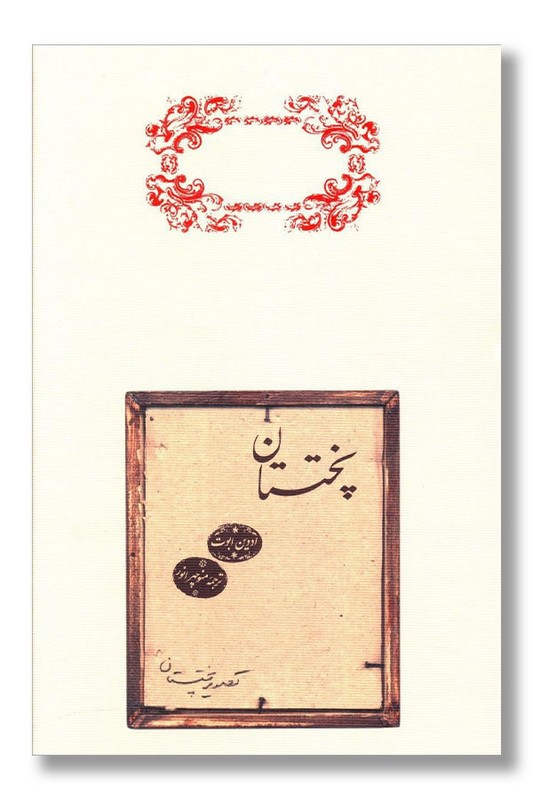 پختستان
ادوین ابوت
ترجمه منوچهر انور
تصویر پختستان